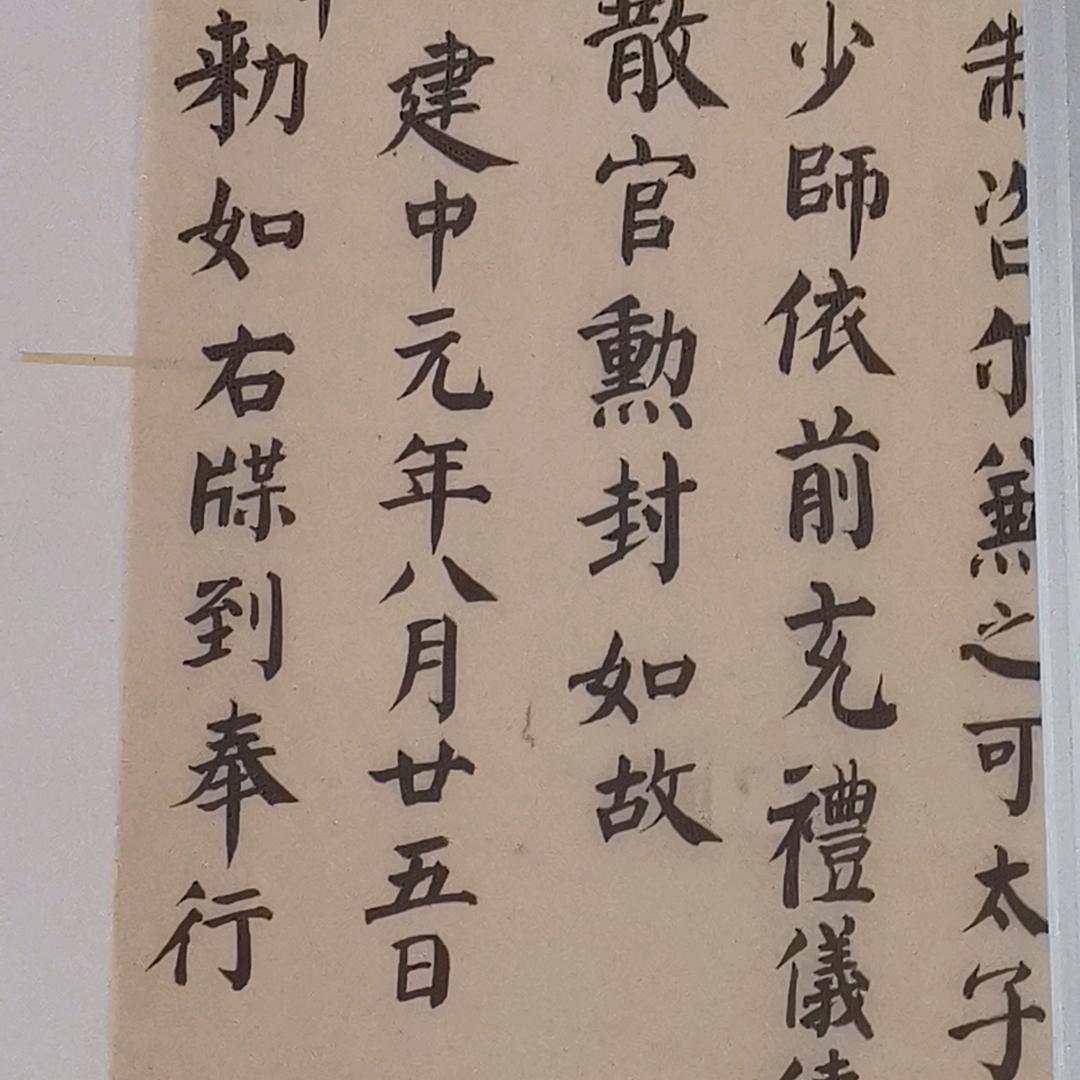 制咨尓兼之可太子
少師依前充禮儀
散官勳封如故
建中元年八月廿五日
勑如右牒到奉行